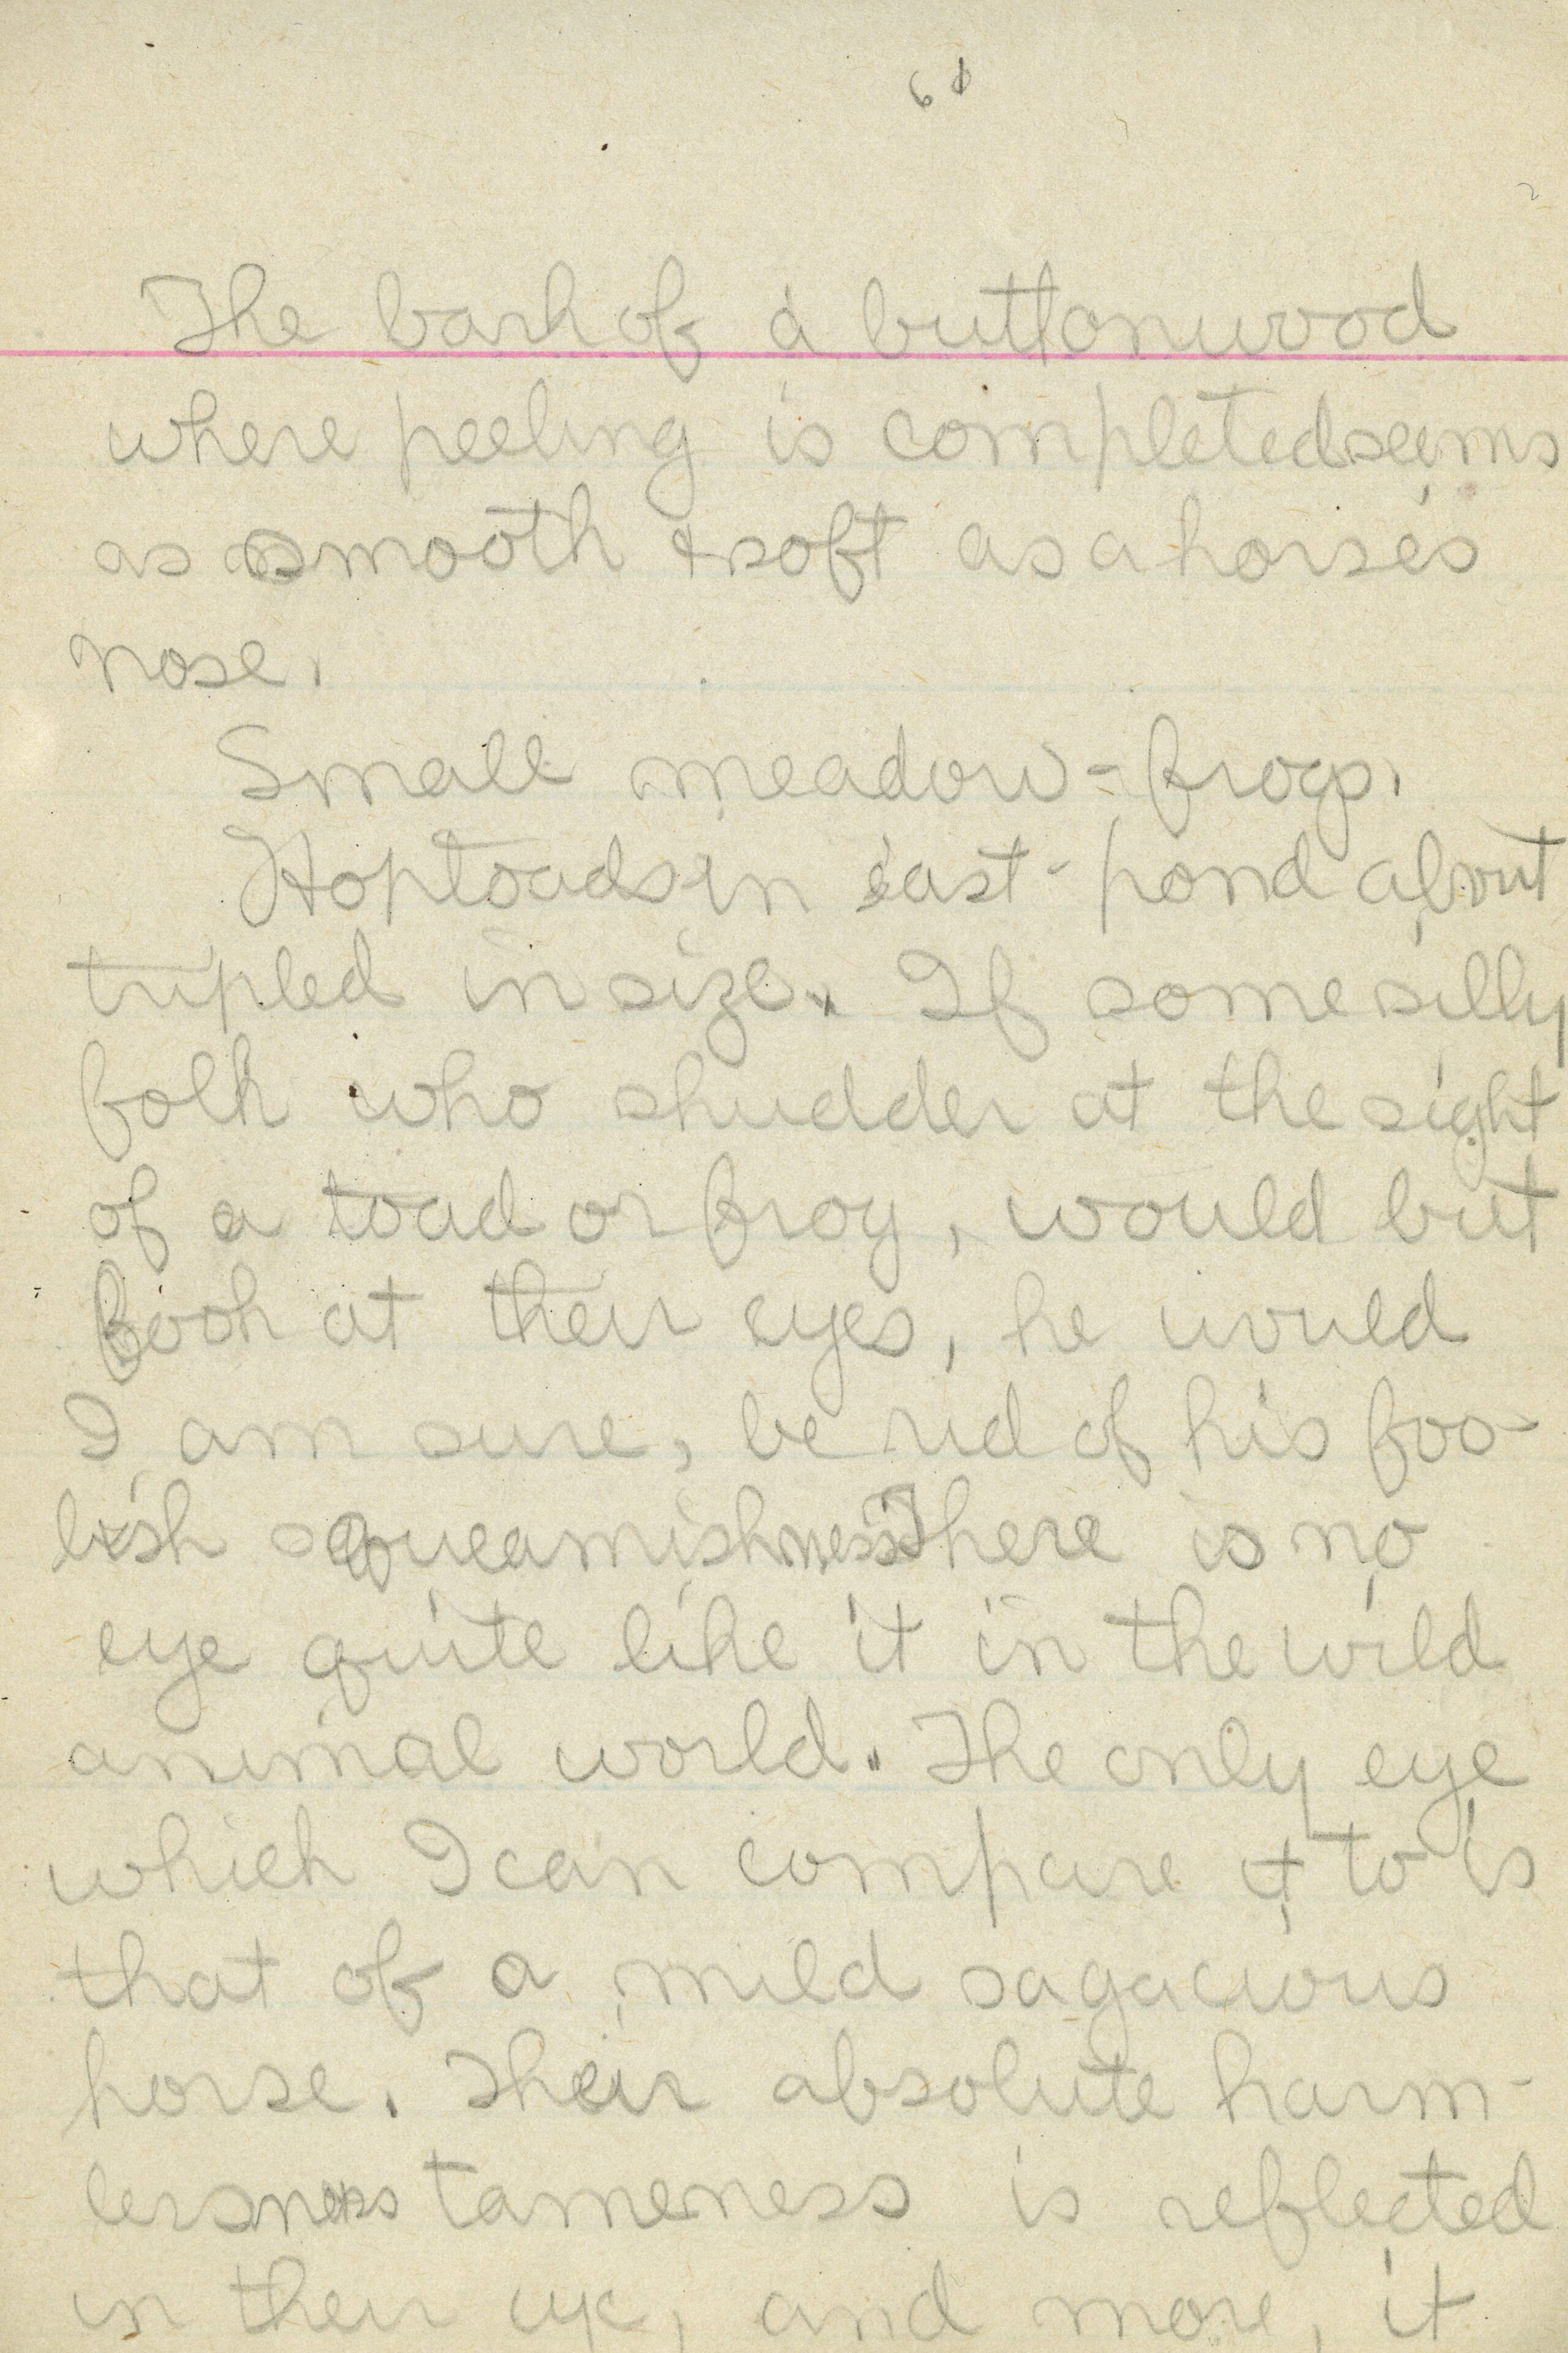 68
The bark of a buttonwood
where peeling is completed seems
as smooth & soft as a horse's
nose.
Small meadow-frogs.
Hoptoads in east-pond about
tripled in size. If some silly
folk who shudder at the sight
of a toad or frog, would but
look at their eyes, he would
I am sure, be rid of his foo-
lish squeamishness. There is no
eye quite like it in the wild
animal world. The only eye
which I can compare it to is
that of a mild sagacious
horse. Their absolute harm-
lessness tameness is reflected
in their eye, and more, it